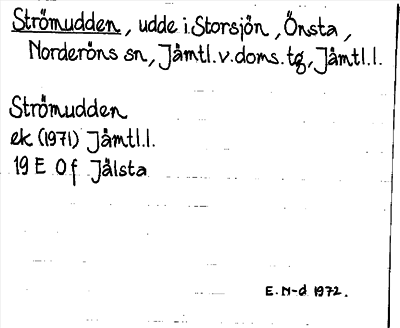 Strömudden, udde i. Storsjön, Önsta,
Norderöns sn, Jämtl.v.doms.tg, Jämtl.l.
Strömudden
ek (1971) Jämtl.l.
19 E 0 f Jälsta
E. N-d 1972.